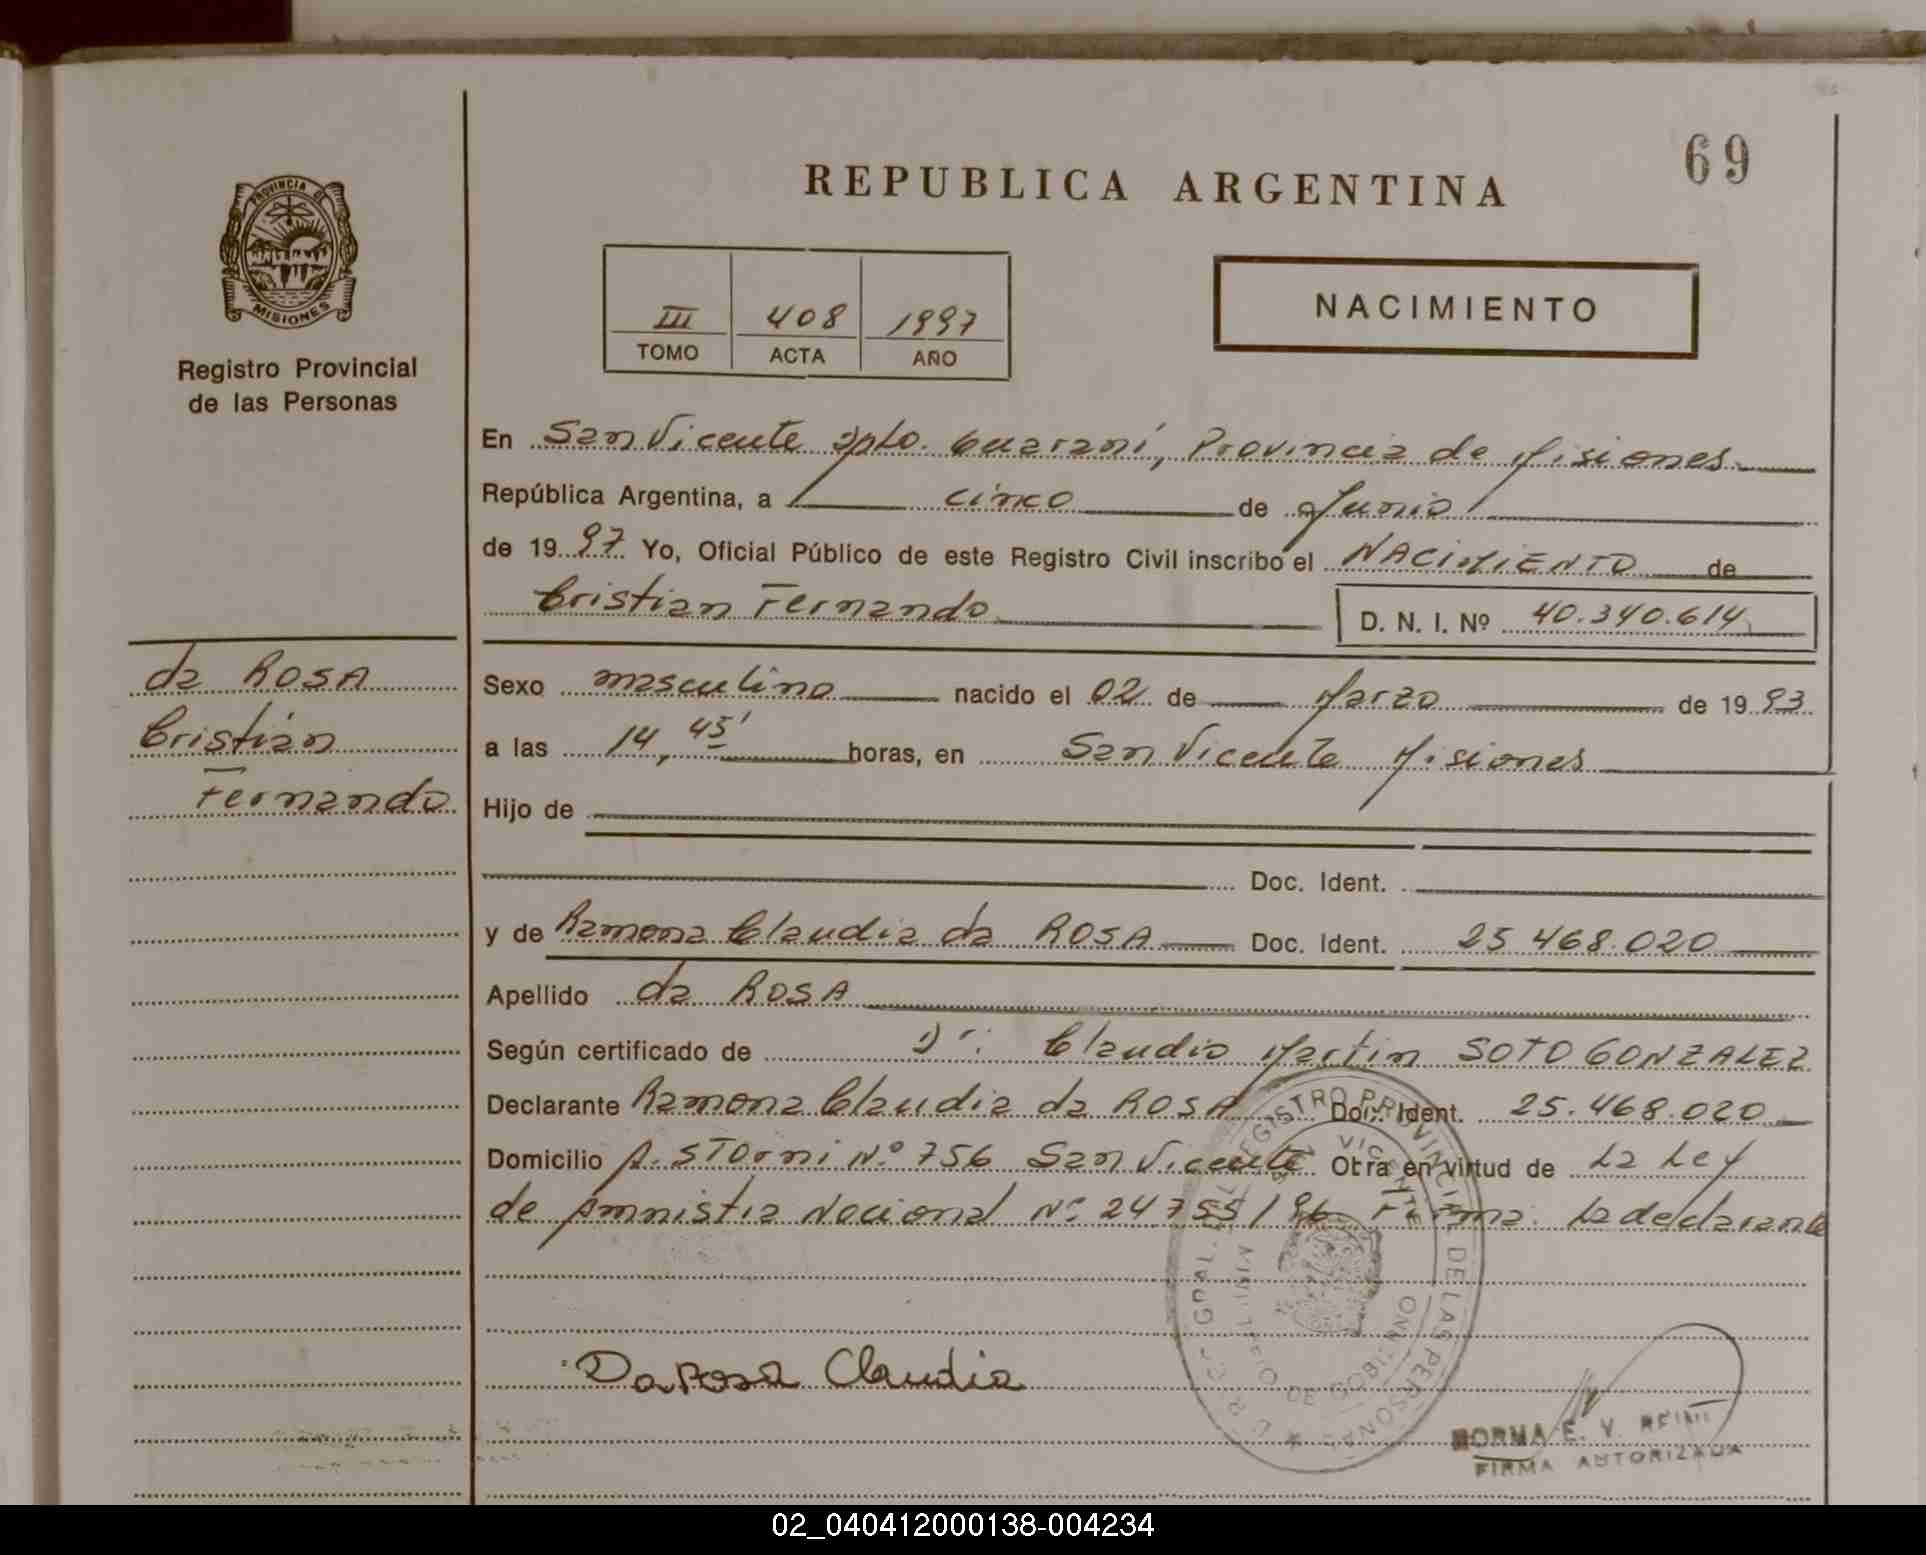 69
REPUBLICA ARGENTINA
PROVINCIA DE
MISIONES
Registro Provincial
de las Personas
III 408 1997
TOMO ACTA AÑO
NACIMIENTO
En San Vicente Dpto. Guaraní, Provincia de Misiones
República Argentina, a cinco de Junio
de 1997 Yo, Oficial Público de este Registro Civil inscribo el NACIMIENTO de
Cristian Fernando D. N. I. Nº 40.340.614
da ROSA
Cristian
Fernando
Sexo masculino nacido el 02 de Marzo de 1993
a las 14,45' horas, en San Vicente Misiones
Hijo de
Doc. Ident.
y de Ramona Claudia da ROSA Doc. Ident. 25.468.020
Apellido da ROSA
Según certificado de Dr. Claudio Martin SOTO GONZALEZ
Declarante Ramona Claudia da ROSA Doc. Ident. 25.468.020
Domicilio A. STORNI Nº 756 San Vicente Obra en virtud de La Ley
de Amnistia Nacional Nº 24755/96 Firma. La declarante
REGISTRO PROVINCIAL DE LAS PERSONAS
SAN VICENTE
DE GOBIERNO
Da Rosa Claudia
NORMA E. Y.
FIRMA AUTORIZADA
02_040412000138-004234